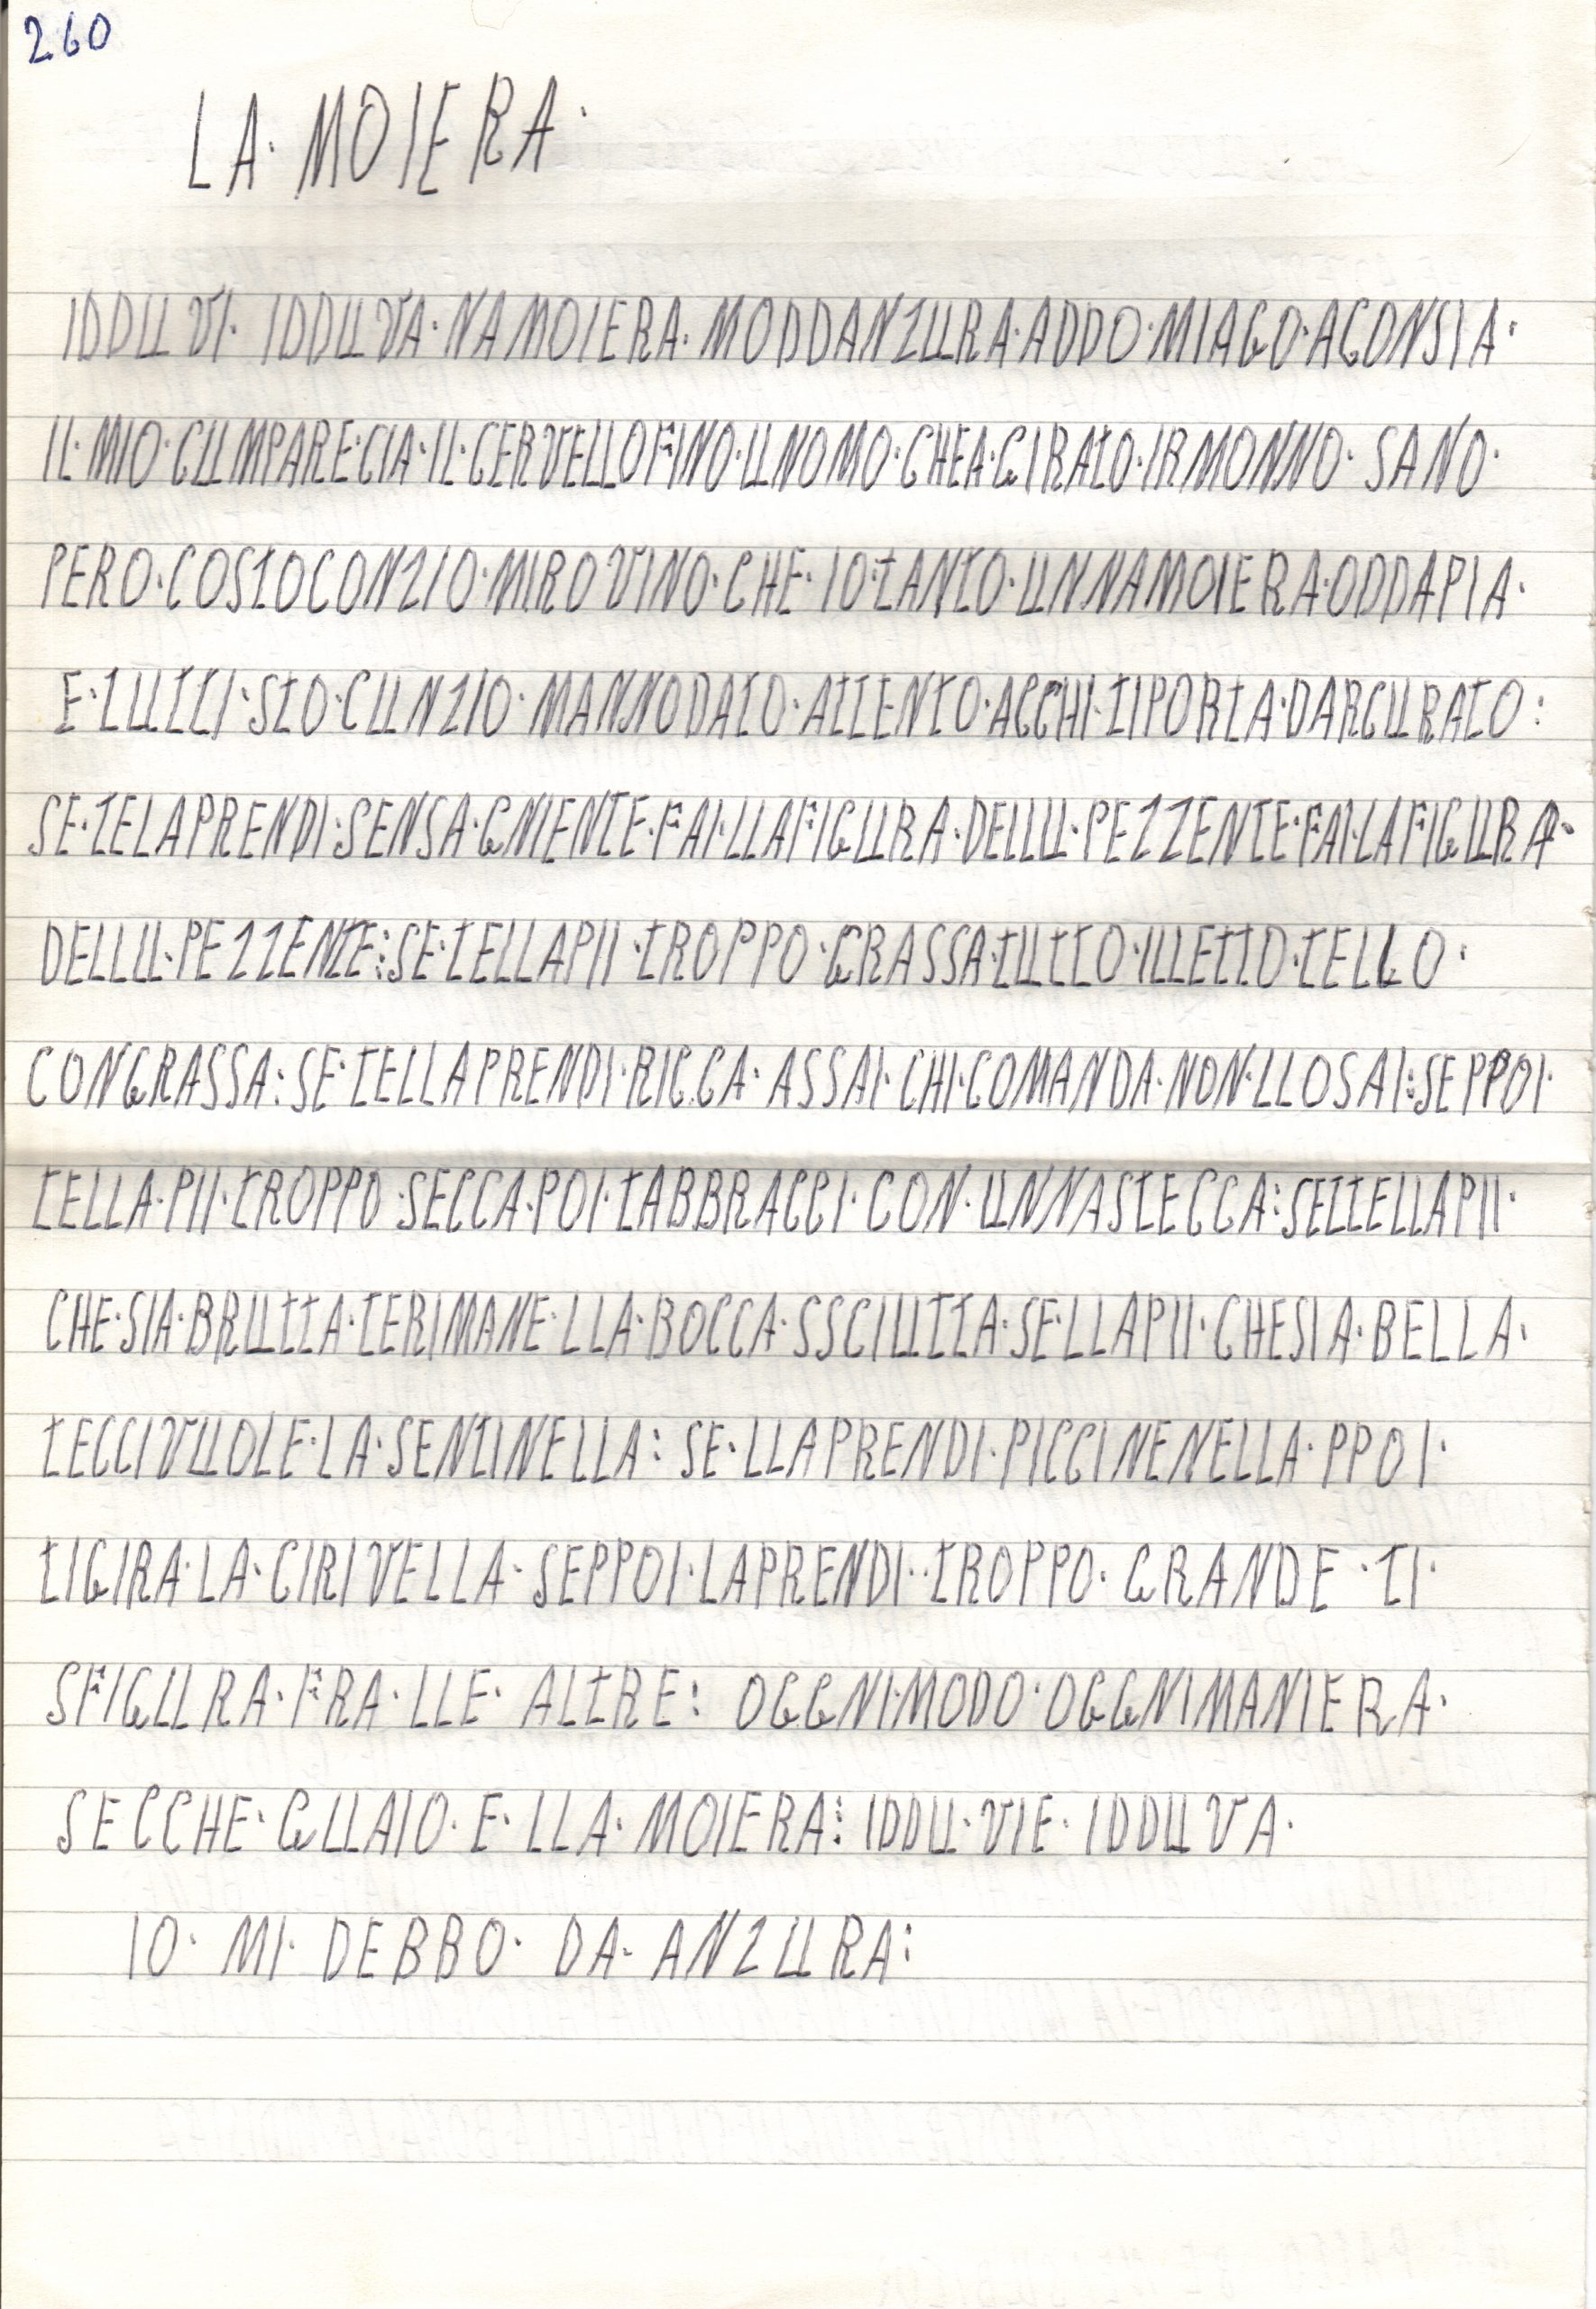 260
LA· MOIERA·
IDDU VI· IDDU VA· NA MOIERA· MODDANZURA· ADDO· MIAGO· AGONSIA·
IL· MIO· CUMPARE· CIA· IL· CERVELLOFINO· UNOMO· CHEA· GIRATO· IRMONNO· SANO·
PERO· COSTOCONZIO· MIROVINO· CHE· IO· TANTO· UNNAMOIERA· ODDAPIA·
E· TUTTI· STO· CUNZIO· MANNODATO· ATTENTO· ACCHI· TIPORTA· DARCURATO:
SE· TELAPRENDI· SENSA· GNIENTE· FAI· LLAFIGURA· DELLU· PEZZENTE· FAI· LAFIGURA·
DELLU· PEZZENTE: SE· TELLAPII· TROPPO· GRASSA· TUTTO· ILLETTO· TELLO·
CONGRASSA: SE· TELLAPRENDI· RICCA· ASSAI· CHI· COMANDA· NON· LLOSAI: SEPPOI·
TELLA· PII· TROPPO· SECCA· POI· TABBRACCI· CON· UNNASTECCA: SETTELLAPII·
CHE· SIA· BRUTTA· TERIMANE· LLA· BOCCA· SSCIUTTA· SE· LLAPII· CHESIA· BELLA·
TECCIVUOLE· LA· SENTINELLA: SE· LLAPRENDI· PICCINENELLA· PPOI·
TIGIRA· LA· CIRIVELLA· SEPPOI· LAPRENDI· TROPPO· GRANDE· TI·
SFIGURA· FRA· LLE· ALTRE: OGGNIMODO· OGGNIMANIERA·
SECCHE· GUAIO· E· LLA· MOIERA: IDDU· VIE· IDDU VA·
IO· MI· DEBBO· DA· ANZURA: